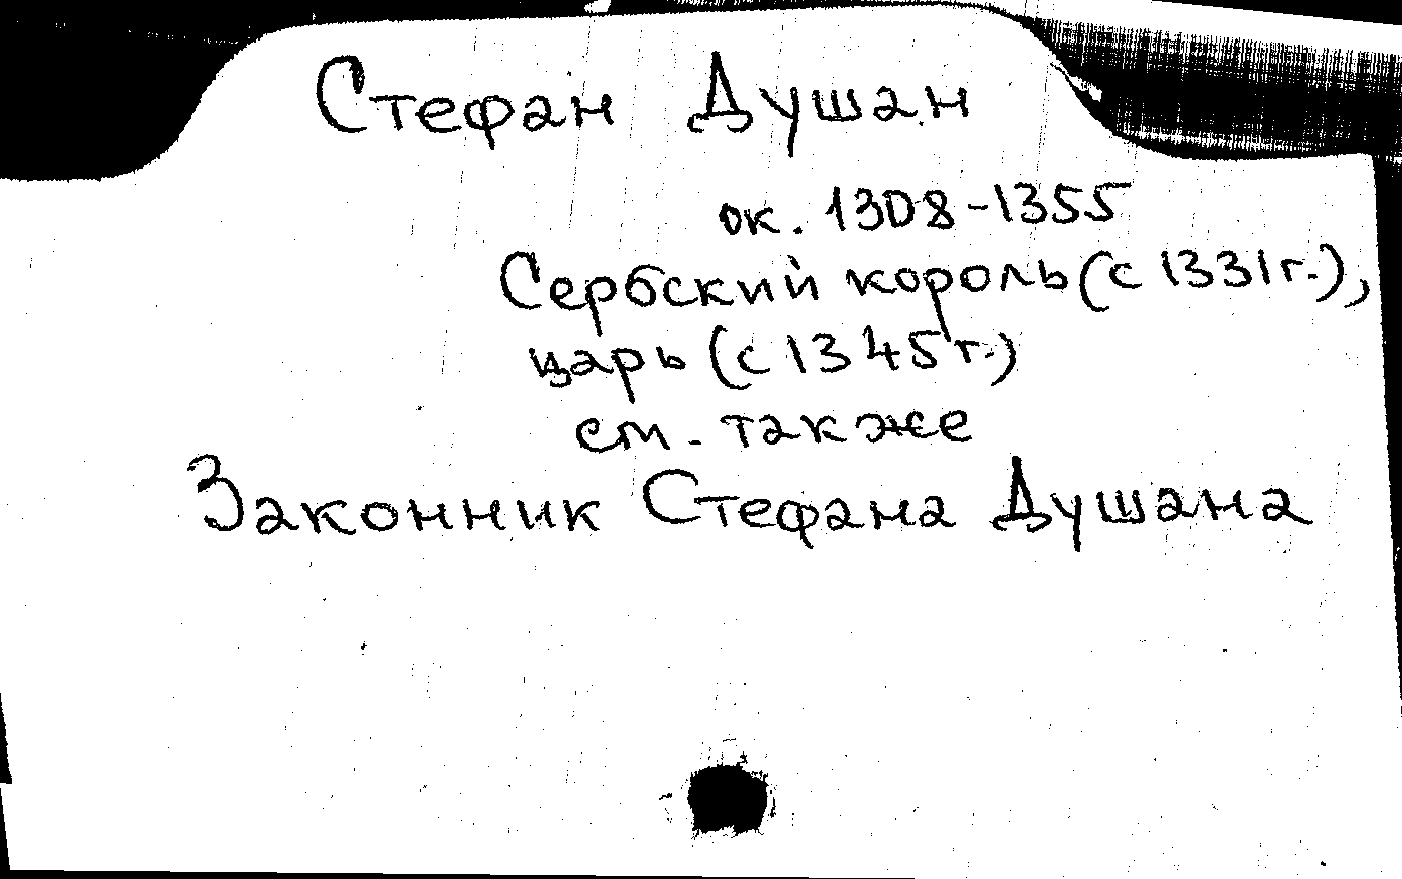 Стефан Душан
ок. 1308-1355
Сербский король (с 1331 г.),
царь (с 1345 г.)
см. также
Законник Стефана Душана